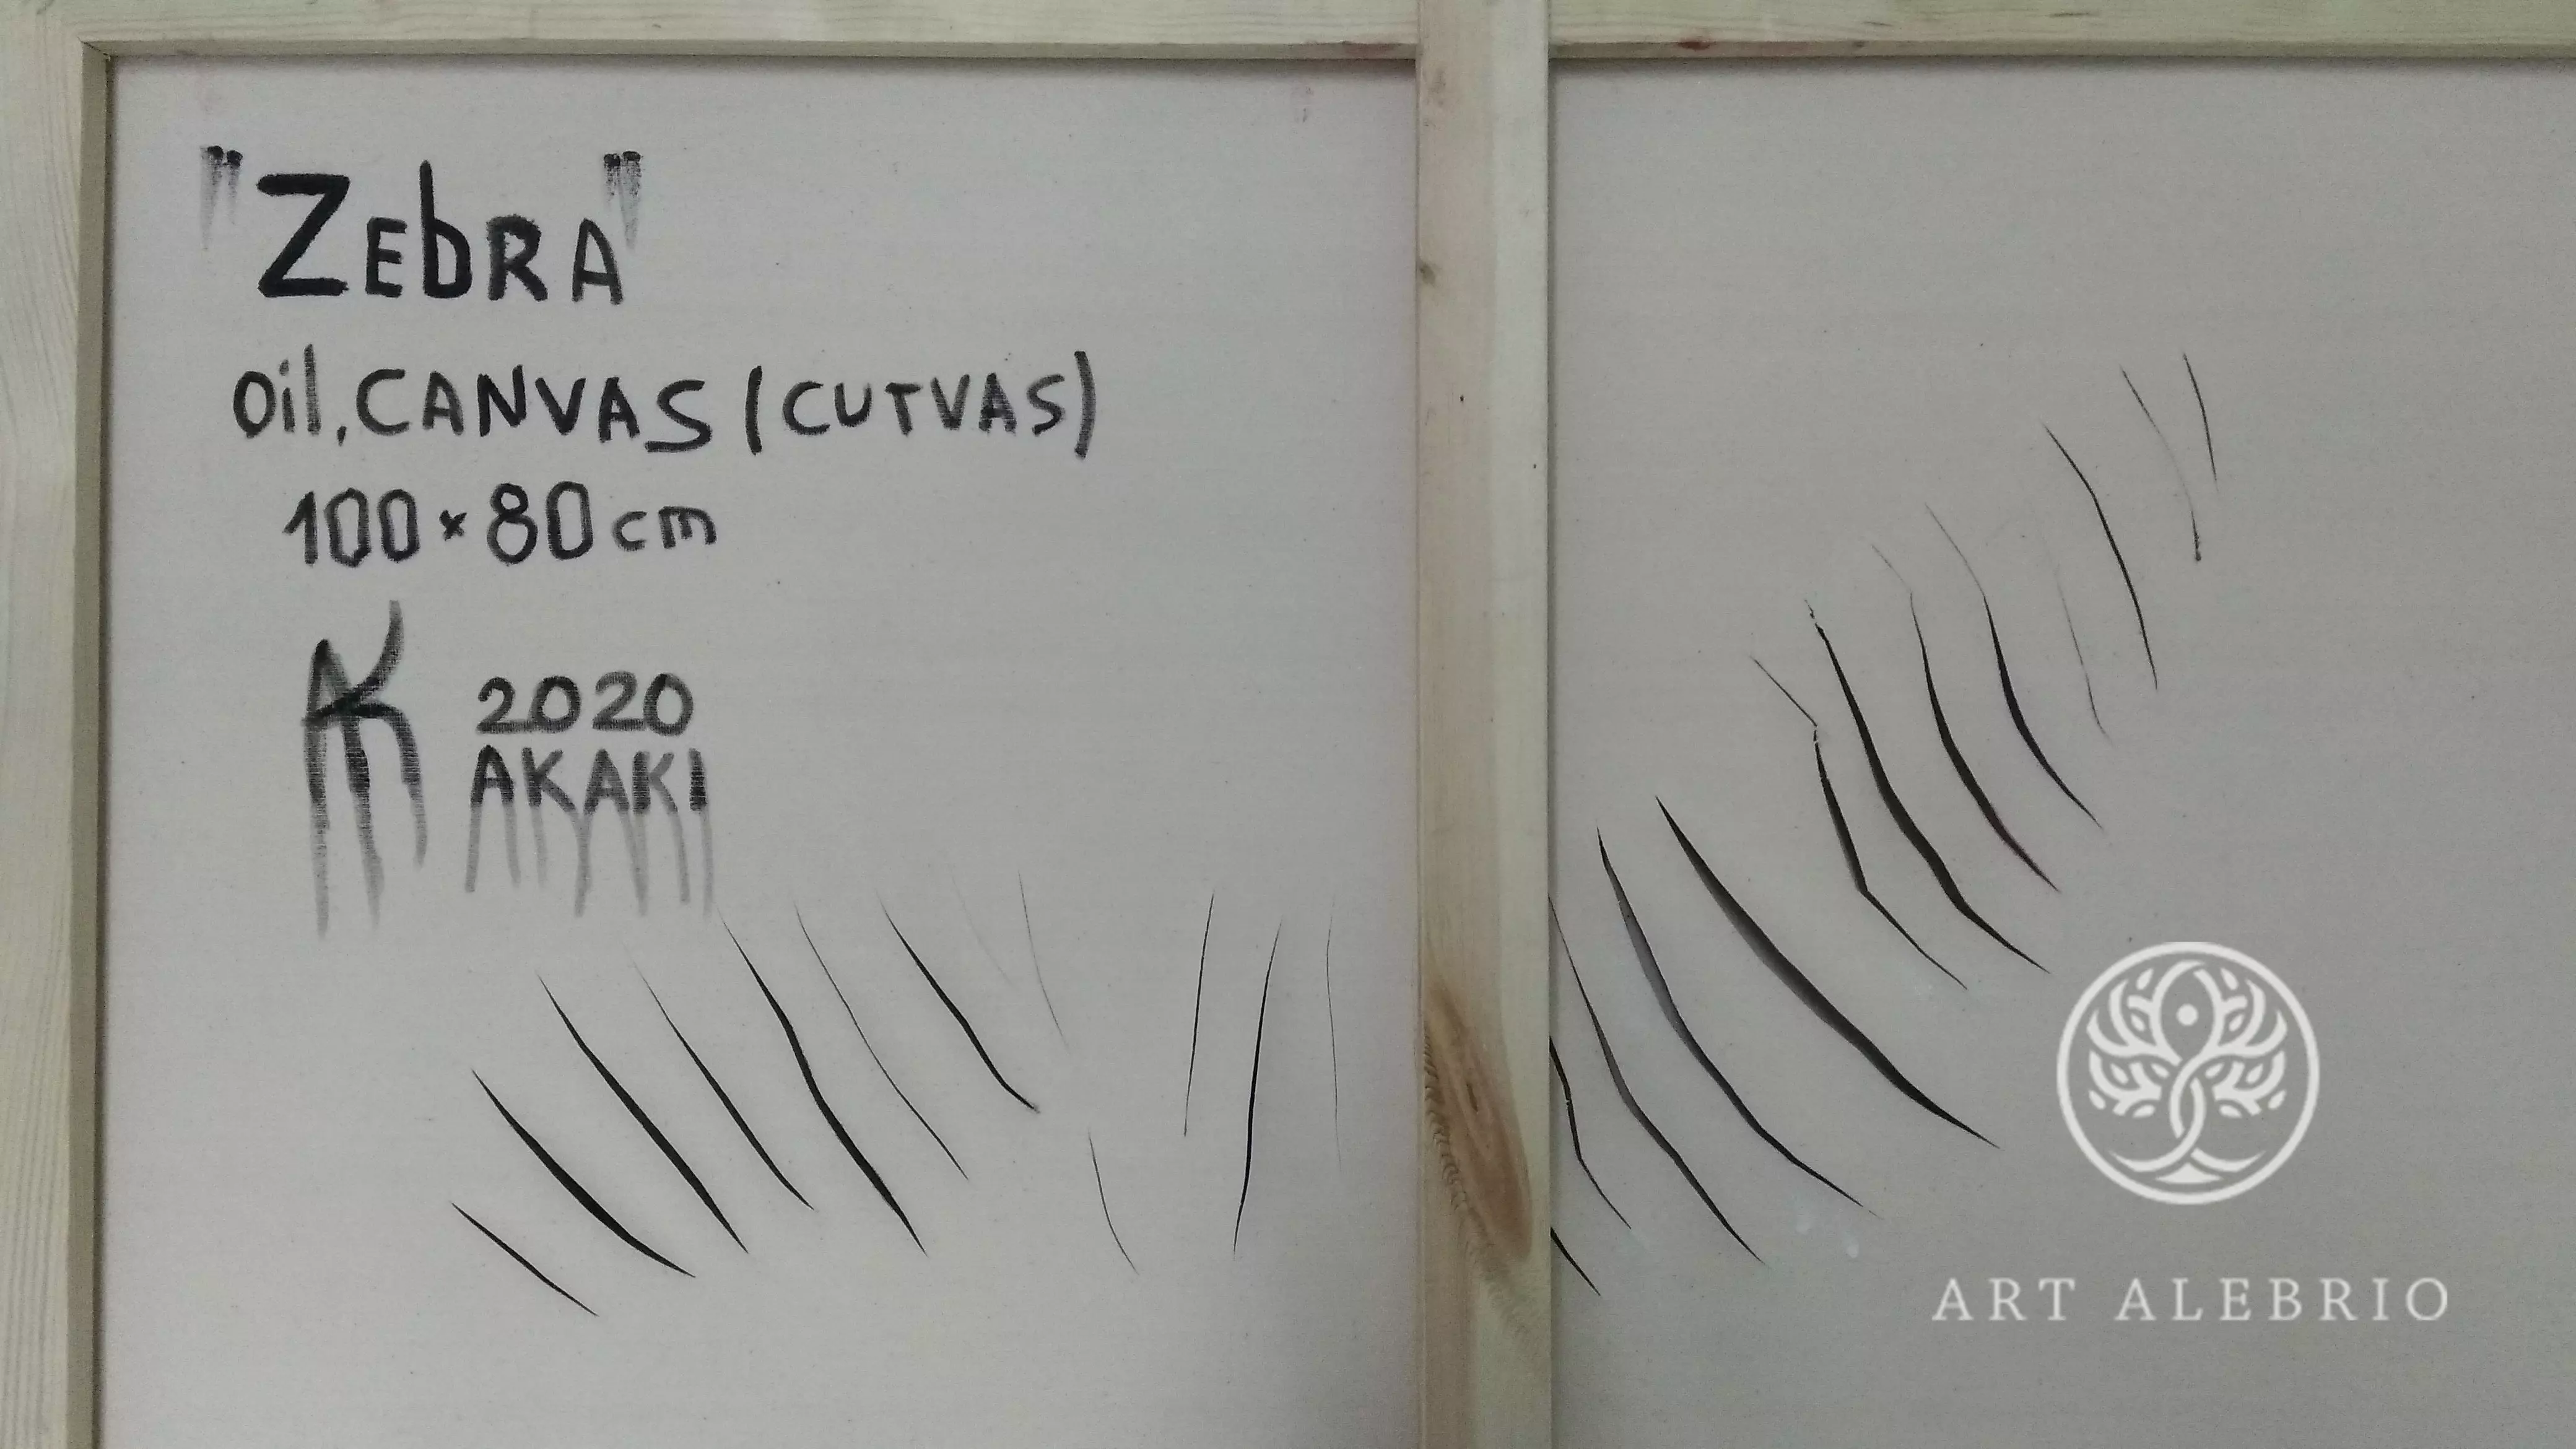 "ZEbRA"
oil, CANVAS (CUTVAS)
100 x 80 cm
AK 2020
AKAKI
ART ALEBRIO